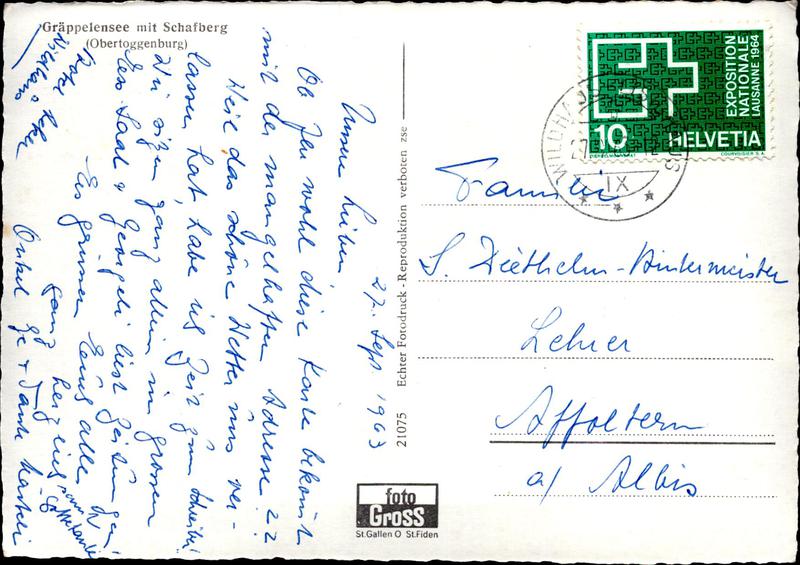 Gräppelensee mit Schafberg
(Obertoggenburg)
27. Sept. 1963
Meine Lieben
Ob Ihr wohl diese Karte bekommt
mit der mangelhaften Adresse ??
Weil das schöne Wetter uns ver-
lassen hat, habe ich Zeit zum schreiben
Wir sitzen ganz allein im grossen
Ess Saal & Georgeli liest Zeitungen
Es grüssen Euch alle
ganz herzlich
Onkel Ge & Tante
21075 Echter Fotodruck - Reproduktion verboten zse
foto
Gross
St.Gallen O St.Fiden
EXPOSITION
NATIONALE
LAUSANNE 1964
10 HELVETIA
COURVOISIER S.A.
WILDHAUS
IX
Familie
S. Diethelm-Hintermeister
Lehrer
Affoltern
a/ Albis